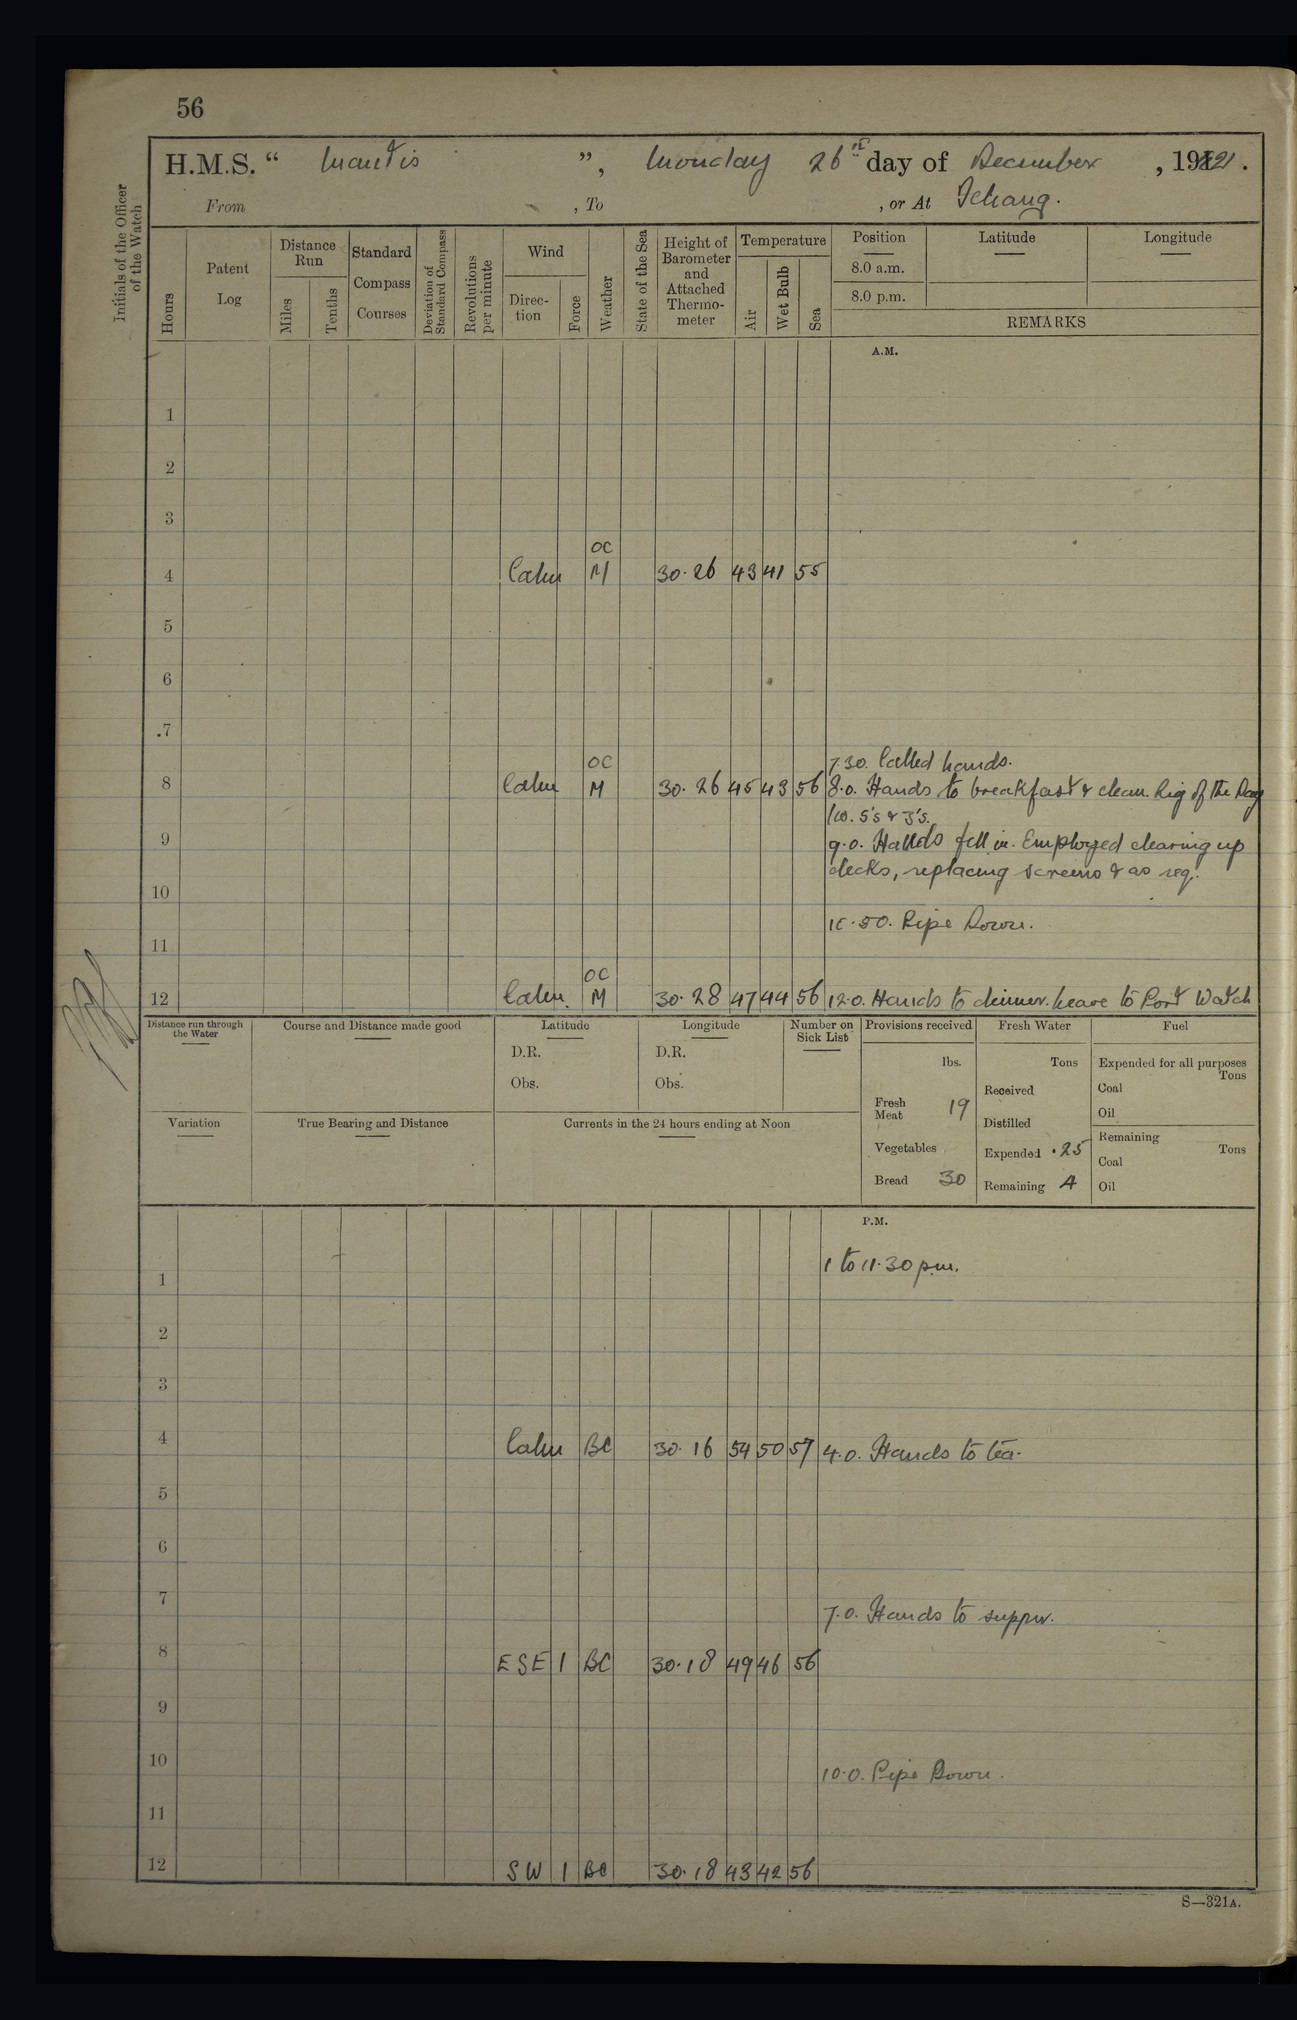 56
H.M.S. “ Mantis ”, Monday 26th day of December, 1921.
From , To , or At Ichang.
Initials of the Officer of the Watch
Hours
Patent Log
Distance Run
Miles
Tenths
Standard Compass Courses
Deviation of Standard Compass
Revolutions per minute
Wind
Direc-tion
Force
Weather
State of the Sea
Height of Barometer and Attached Thermo-meter
Temperature
Air
Wet Bulb
Sea
Position
8.0 a.m.
8.0 p.m.
Latitude
Longitude
REMARKS
A.M.
1
2
3
OC
4 Calm M 30.26 43 41 55
5
6
7
7.30. Called hands.
OC
8 Calm M 30.26 45 43 56 8.0. Hands to breakfast & clean. Rig of the Day
No. 5's & 3's.
9 9.0. Hands fell in. Employed clearing up
decks, replacing screens & as req.
10
10.50. Pipe Down.
11
OC
12 Calm. M 30.28 47 44 56 12.0. Hands to dinner. Leave to Port Watch
Distance run through the Water
Course and Distance made good
Latitude
D.R.
Obs.
Longitude
D.R.
Obs.
Number on Sick List
Provisions received
lbs.
Fresh Meat 19
Vegetables
Bread 30
Fresh Water
Tons
Received
Distilled
Expended .25
Remaining 4
Fuel
Expended for all purposes
Tons
Coal
Oil
Remaining
Tons
Coal
Oil
Variation
True Bearing and Distance
Currents in the 24 hours ending at Noon
P.M.
1 to 11.30 p.m.
1
2
3
4 Calm BC 30.16 54 50 57 4.0. Hands to tea.
5
6
7 7.0. Hands to supper.
8 ESE 1 BC 30.18 49 46 56
9
10 10.0. Pipe Down.
11
12 SW 1 BC 30.18 43 42 56
S—321A.